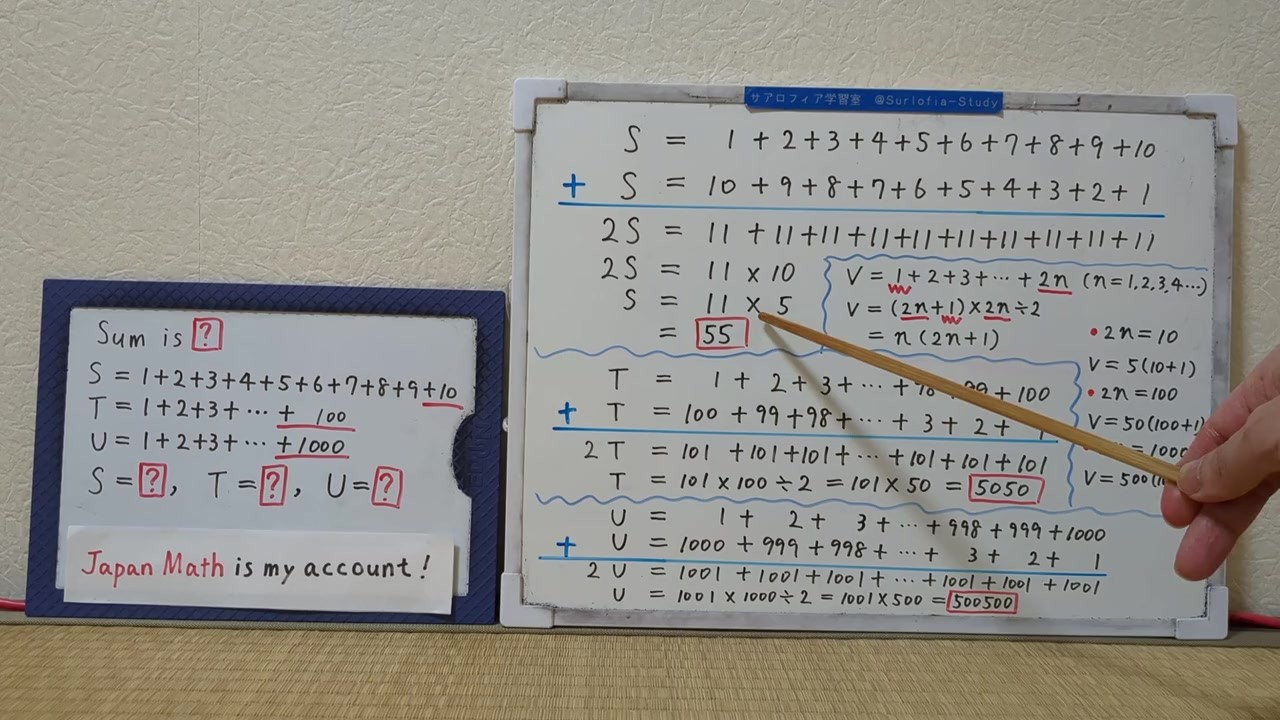 Sum is ?
S = 1+2+3+4+5+6+7+8+9+10
T = 1+2+3+ ⋯ + 100
U = 1+2+3+ ⋯ +1000
S = ?, T = ?, U = ?
Japan Math is my account!
サアロフィア学習室 @Surlofia-Study
S = 1 + 2+3+4+5+6+7+8+9+10
+ S = 10 +9+8+7+6+5+4+3+2+1
2S = 11 +11+11+11+11+11+11+11+11+11
2S = 11 × 10
S = 11 × 5
= 55
V = 1+2+3+ ⋯ + 2n (n=1,2,3,4⋯)
V = (2n+1)×2n÷2
= n(2n+1)
• 2n = 10
V = 5(10+1)
• 2n = 100
V = 50(100+1)
= 1000
V = 500(
T = 1 + 2+3+ ⋯ + 98 + 99 + 100
+ T = 100 + 99+98+ ⋯ + 3 + 2 + 1
2T = 101 +101+101+ ⋯ +101+101+101
T = 101×100÷2 = 101×50 = 5050
U = 1 + 2 + 3+ ⋯ +998+999+1000
+ U = 1000 + 999 +998+ ⋯ + 3+ 2+ 1
2U = 1001 +1001+1001+ ⋯ +1001+1001+1001
U = 1001×1000÷2 = 1001×500 = 500500